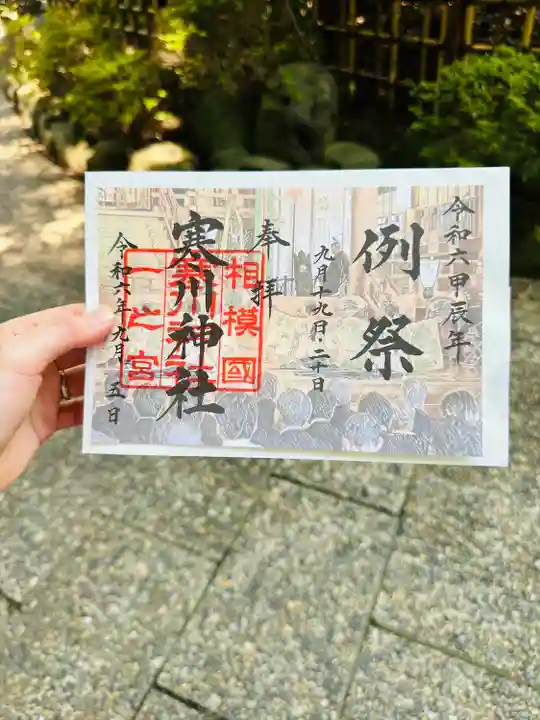 令和六甲辰年
例祭
九月十九日・二十日
奉拝
寒川神社
相模國
一之宮
令和六年九月
五日